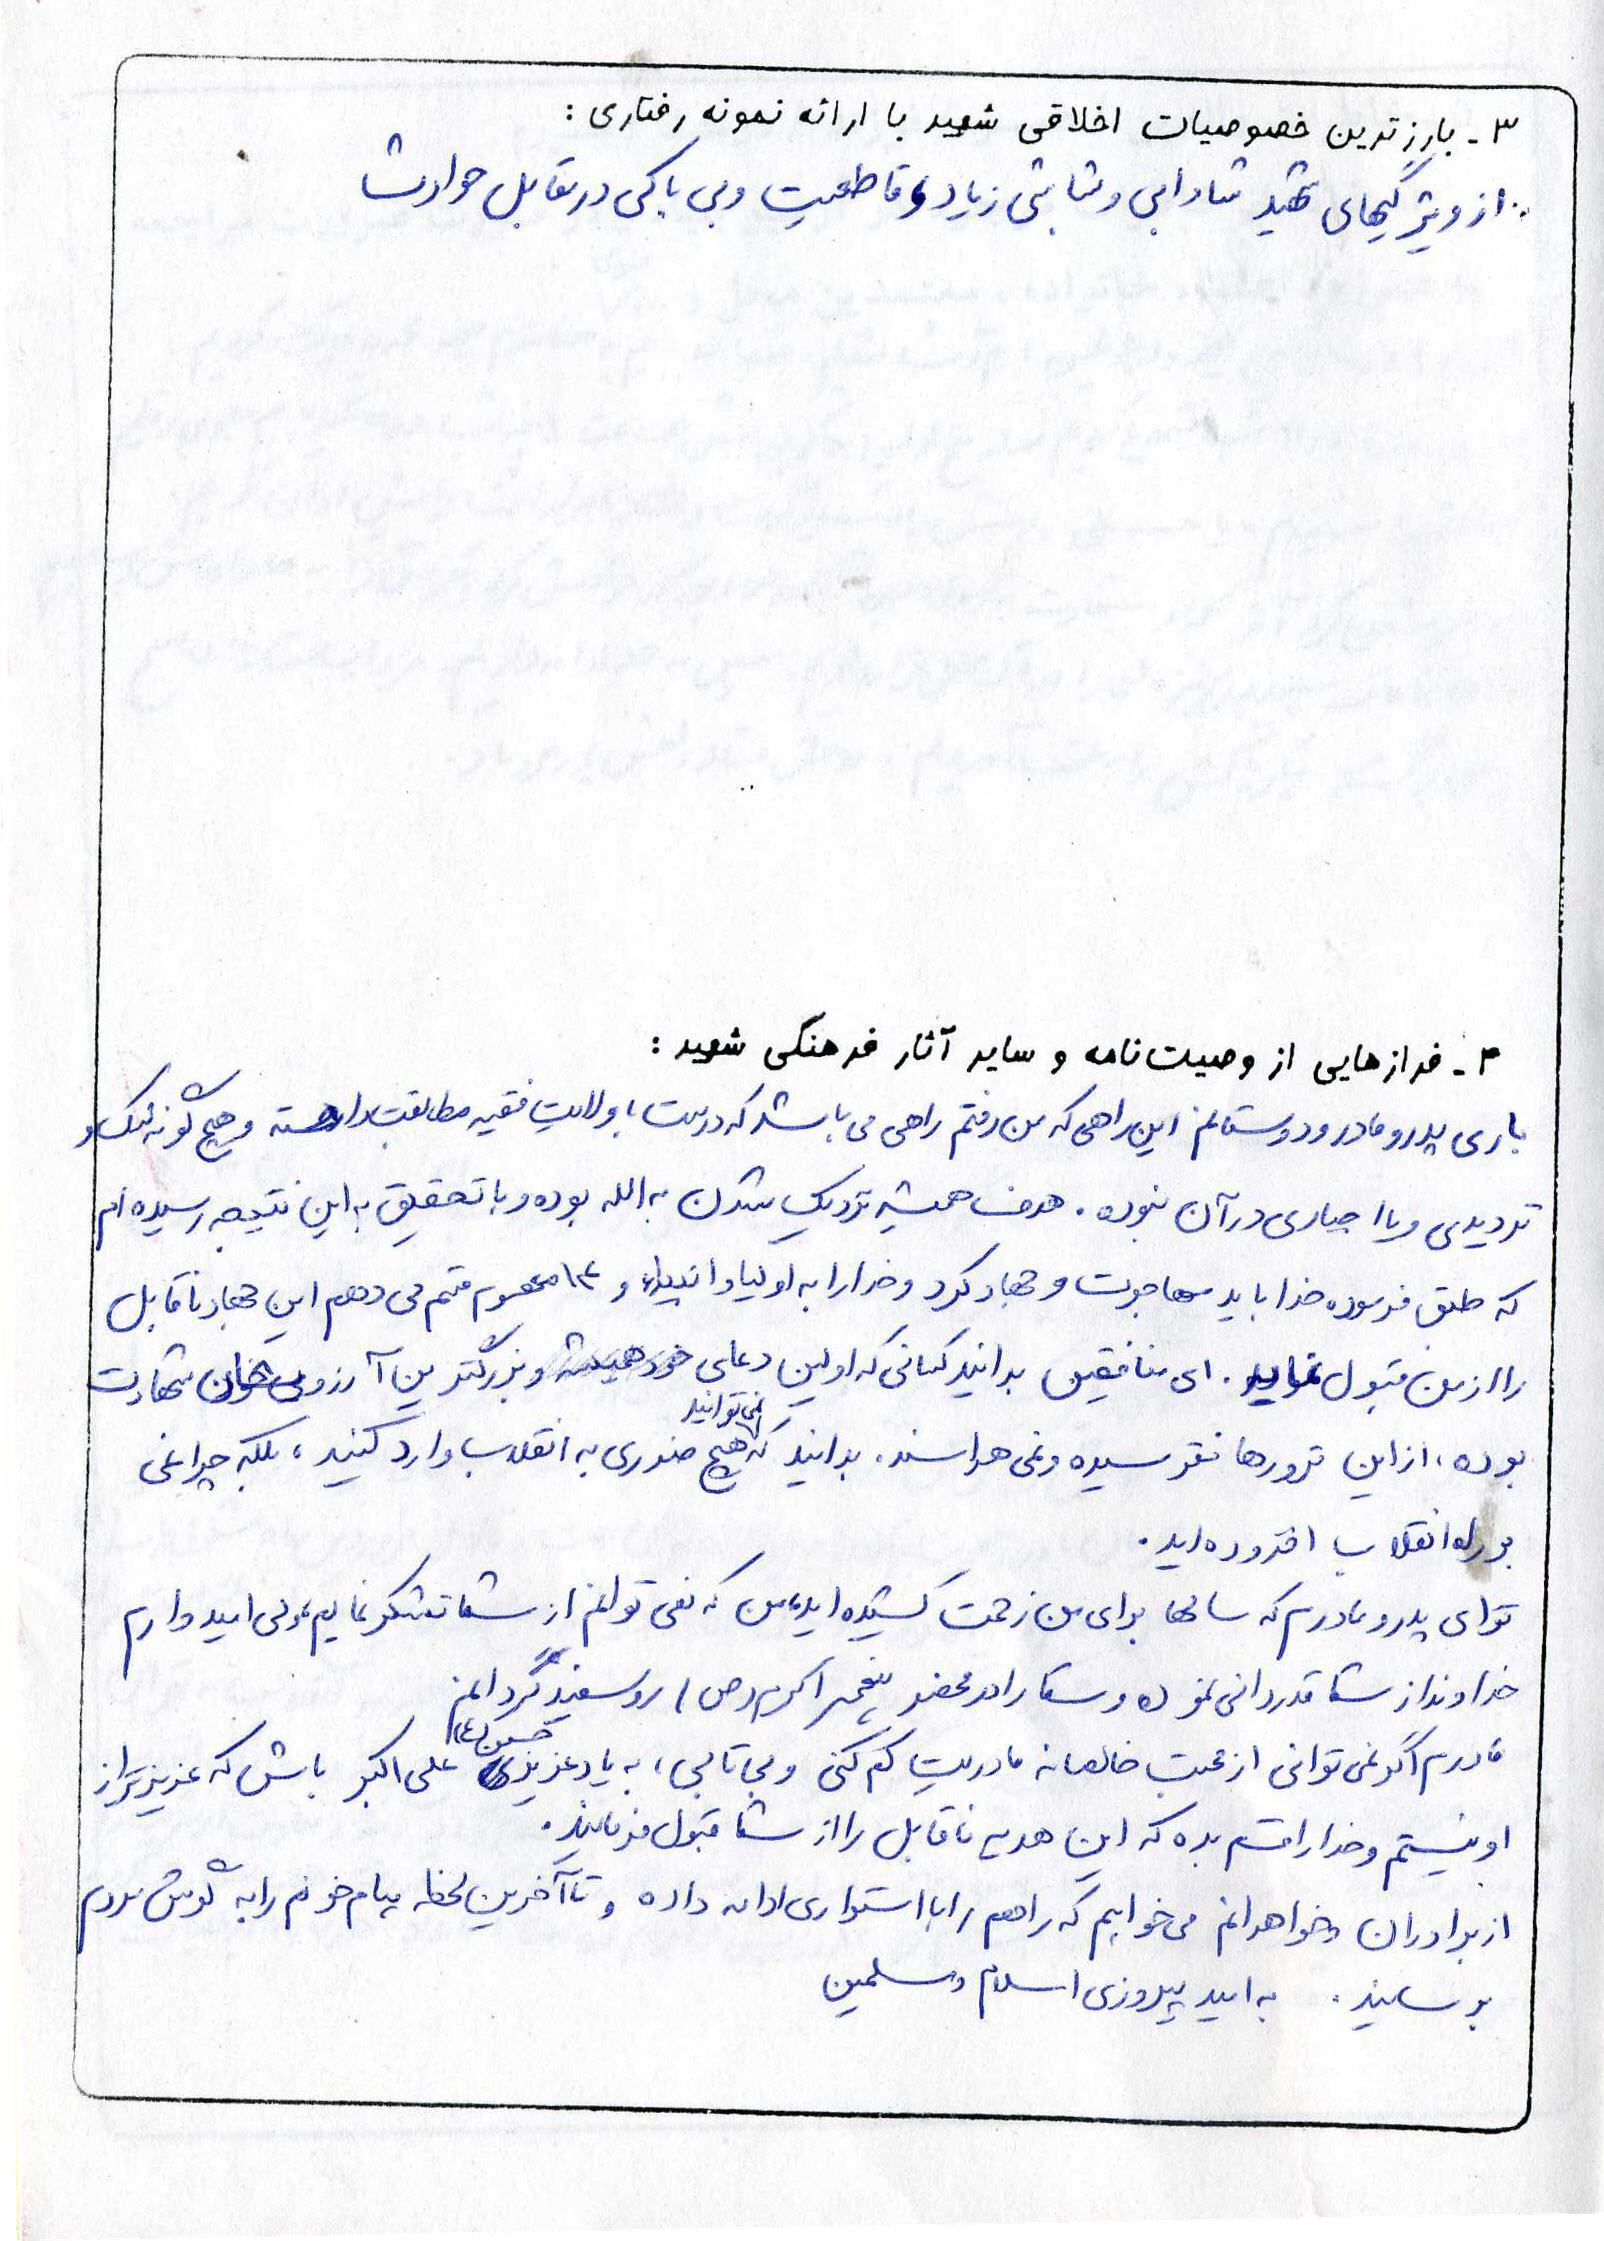 ۳- بارزترین خصوصیات اخلاقی شهید با ارائه نمونه رفتاری :
از ویژگیهای شهید شادابی و بشاشی زیاد و قاطعیت و بی باکی در مقابل حوادث
۴- فرازهایی از وصیت‌نامه و سایر آثار فرهنگی شهید :
باری پدر و مادر و دوستانم این راهی که من رفتم راهی می باشد که درست با ولایت فقیه مطابقت داشته و هیچ گونه شک و
تردیدی و یا اجباری در آن نبوده . هدف همیشه نزدیک شدن به الله بوده و با تحقیق به این نتیجه رسیده ام
که طبق فرموده خدا باید مهاجرت و جهاد کرد و خدا را به اولیا و انبیاء و ۱۴ معصوم قسم می دهم این جهاد ناقابل
را از من قبول نماید . ای منافقین بدانید کسانی که اولین دعای و بزرگترین آرزوی شهادت
بوده ، از این ترورها نترسیده و نمی هراسند . بدانید که هیچ ضرری نمی توانید به انقلاب وارد کنید ، بلکه چراغی
بر راه انقلاب افزوده اید .
تو ای پدر و مادرم که سالها برای من زحمت کشیده اید من که نمی توانم از شما تشکر نمایم ولی امیدوارم
خداوند از شما قدردانی نموده و شما را در محضر پیغمبر اکرم (ص) روسفید گردانم
مادرم اگر نمی توانی از محبت خالصانه مادریت کم کنی و بی تابی ، به یاد عزیز حسین (ع) علی اکبر باش که عزیزتر از
او نیستم و خدا را قسم بده که این هدیه ناقابل را از شما قبول فرمایند .
از برادران و خواهرانم می خواهم که راهم را با استواری ادامه داده و تا آخرین لحظه پیام خونم را به گوش مردم
برسانید . به امید پیروزی اسلام و مسلمین